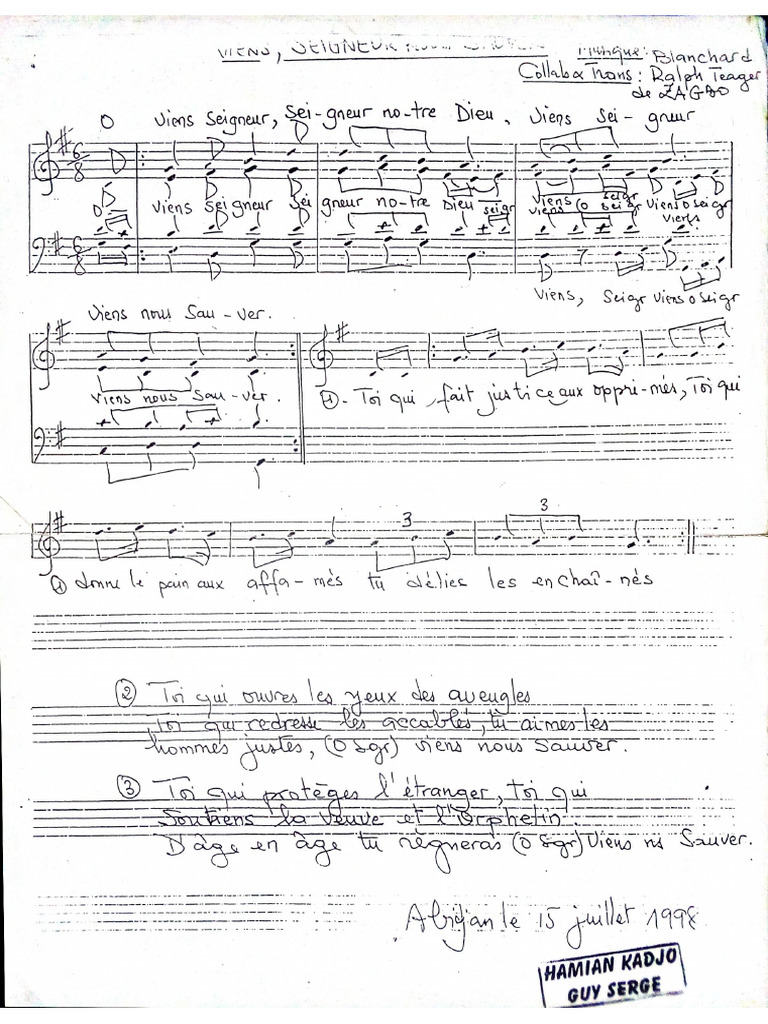 VIENS, SEIGNEUR NOUS SAUVER
Musique: Blanchard
Collab & Trans: Ralph Teager
de ZAGBO
O Viens Seigneur, Sei-gneur no-tre Dieu. Viens Sei-gneur
6/8
viens Seigneur Sei gneur no-tre Dieu seigr viens (O seigr viens o seigr
viens
6/8
7
Viens, Seigr viens o Seigr
Viens nous Sau-ver.
viens nous Sau-ver.
1 - Toi qui, fait justice aux oppri-més, Toi qui
3
3
1 donne le pain aux affa-més tu délies les enchaî-nés
2 Toi qui ouvres les yeux des aveugles
Toi qui redresse les accablés, tu aimes les
hommes justes, (O Sgr) viens nous Sauver.
3 Toi qui protèges l'étranger, toi qui
Soutiens la veuve et l'Orphelin.
D'âge en âge tu règneras (O Sgr) Viens ns Sauver.
Abidjan le 15 juillet 1998
HAMIAN KADJO
GUY SERGE